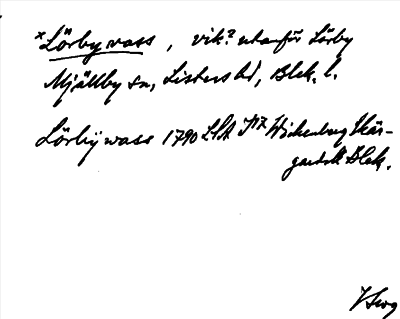 *Lörby vass, vik? utanför Lörby
Mjällby sn, Listers hd, Blek. l.
Lörbÿ wass 1790 LSA Wickenberg Skär-
gårdsk Blek.